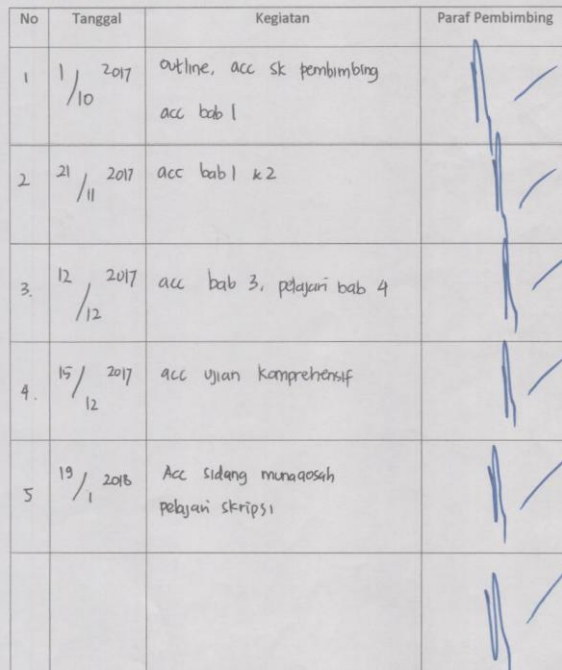 No Tanggal Kegiatan Paraf Pembimbing
1 1/10 2017 outline, acc sk pembimbing
acc bab 1
2 21/11 2017 acc bab 1 & 2
3. 12/12 2017 acc bab 3, pelajari bab 4
4. 15/12 2017 acc ujian komprehensif
5 19/1 2018 Acc sidang munaqosah
pelajari skripsi